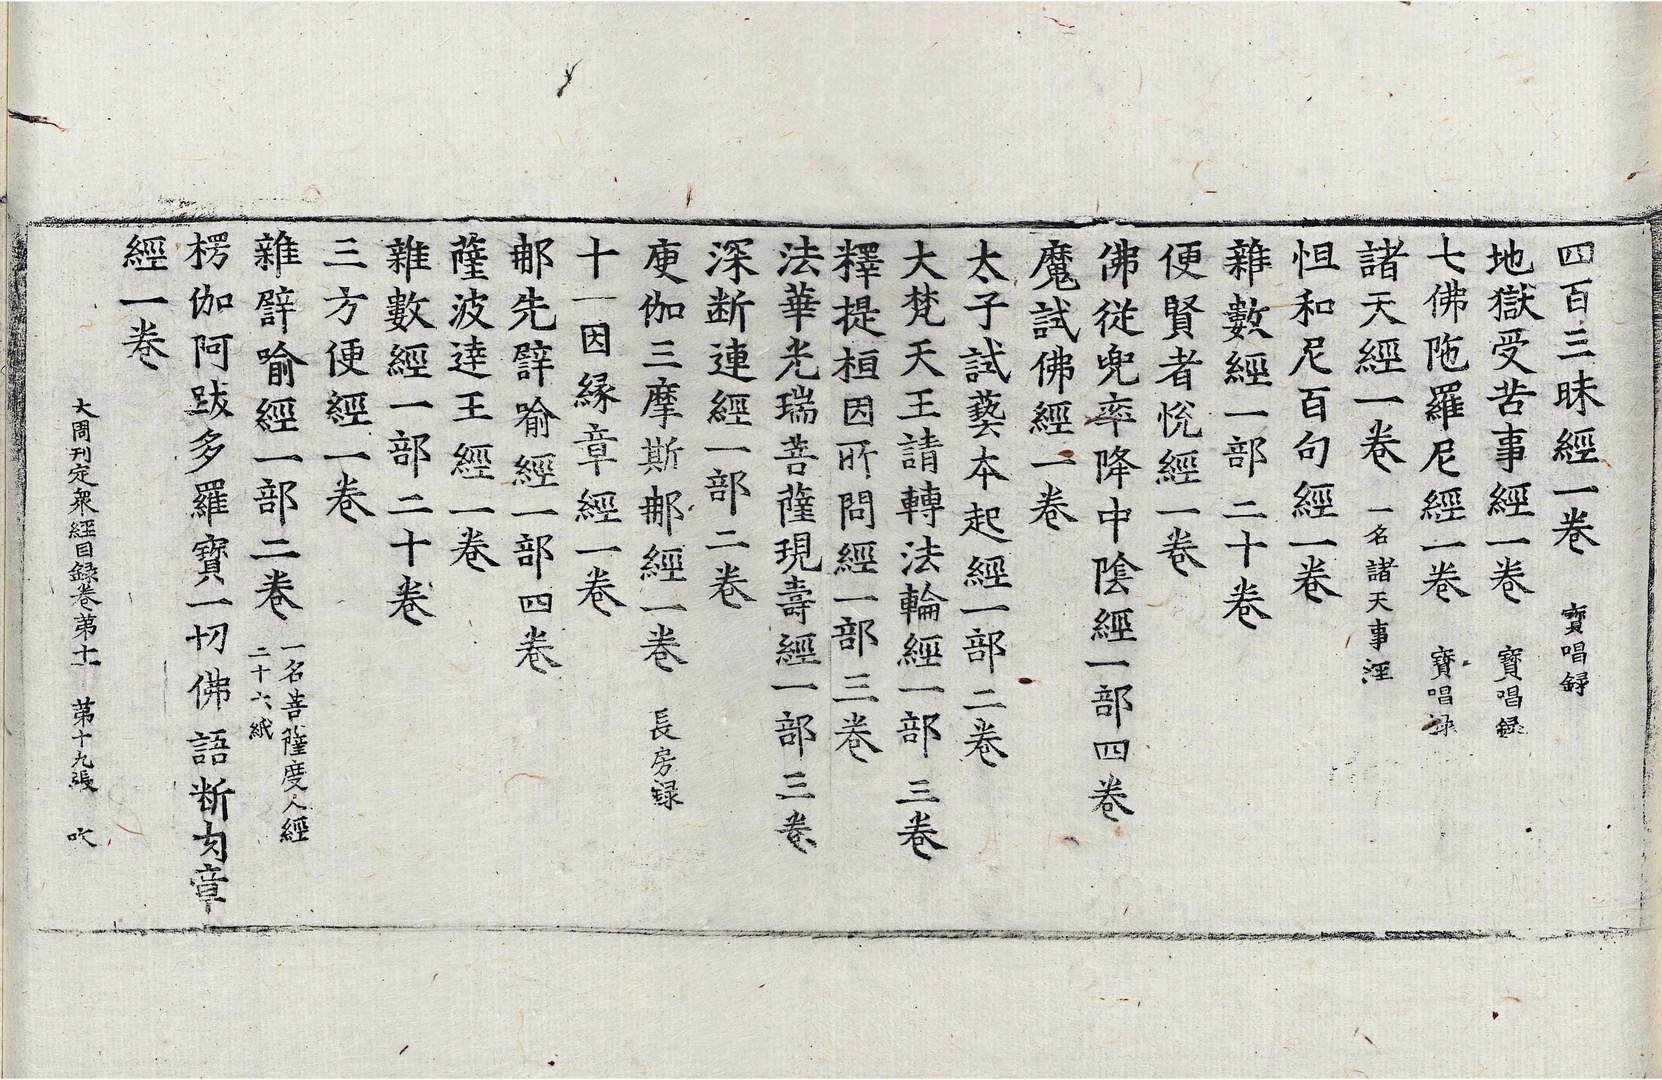 四百三昧經一卷 寶唱録
地獄受苦事經一卷 寶唱録
七佛陁羅尼經一卷 寶唱録
諸天經一卷 一名諸天事經
怛和尼百句經一卷
雜數經一部二十卷
便賢者恱經一卷
佛從兜率降中陰經一部四卷
魔試佛經一卷
太子試藝本起經一部二卷
大梵天王請轉法輪經一部三卷
釋提桓因所問經一部三卷
法華光瑞菩薩現壽經一部三卷
深断連經一部二卷
庾伽三摩斯那經一卷 長房録
十一因縁章經一卷
那先譬喻經一部四卷
薩波達王經一卷
雜數經一部二十卷
三方便經一卷
雜譬喻經一部二卷 一名菩薩度人經
二十六紙
楞伽阿跋多羅寶一切佛語断句章
經一卷
大周刊定衆經目録卷第十一 第十九張 吹